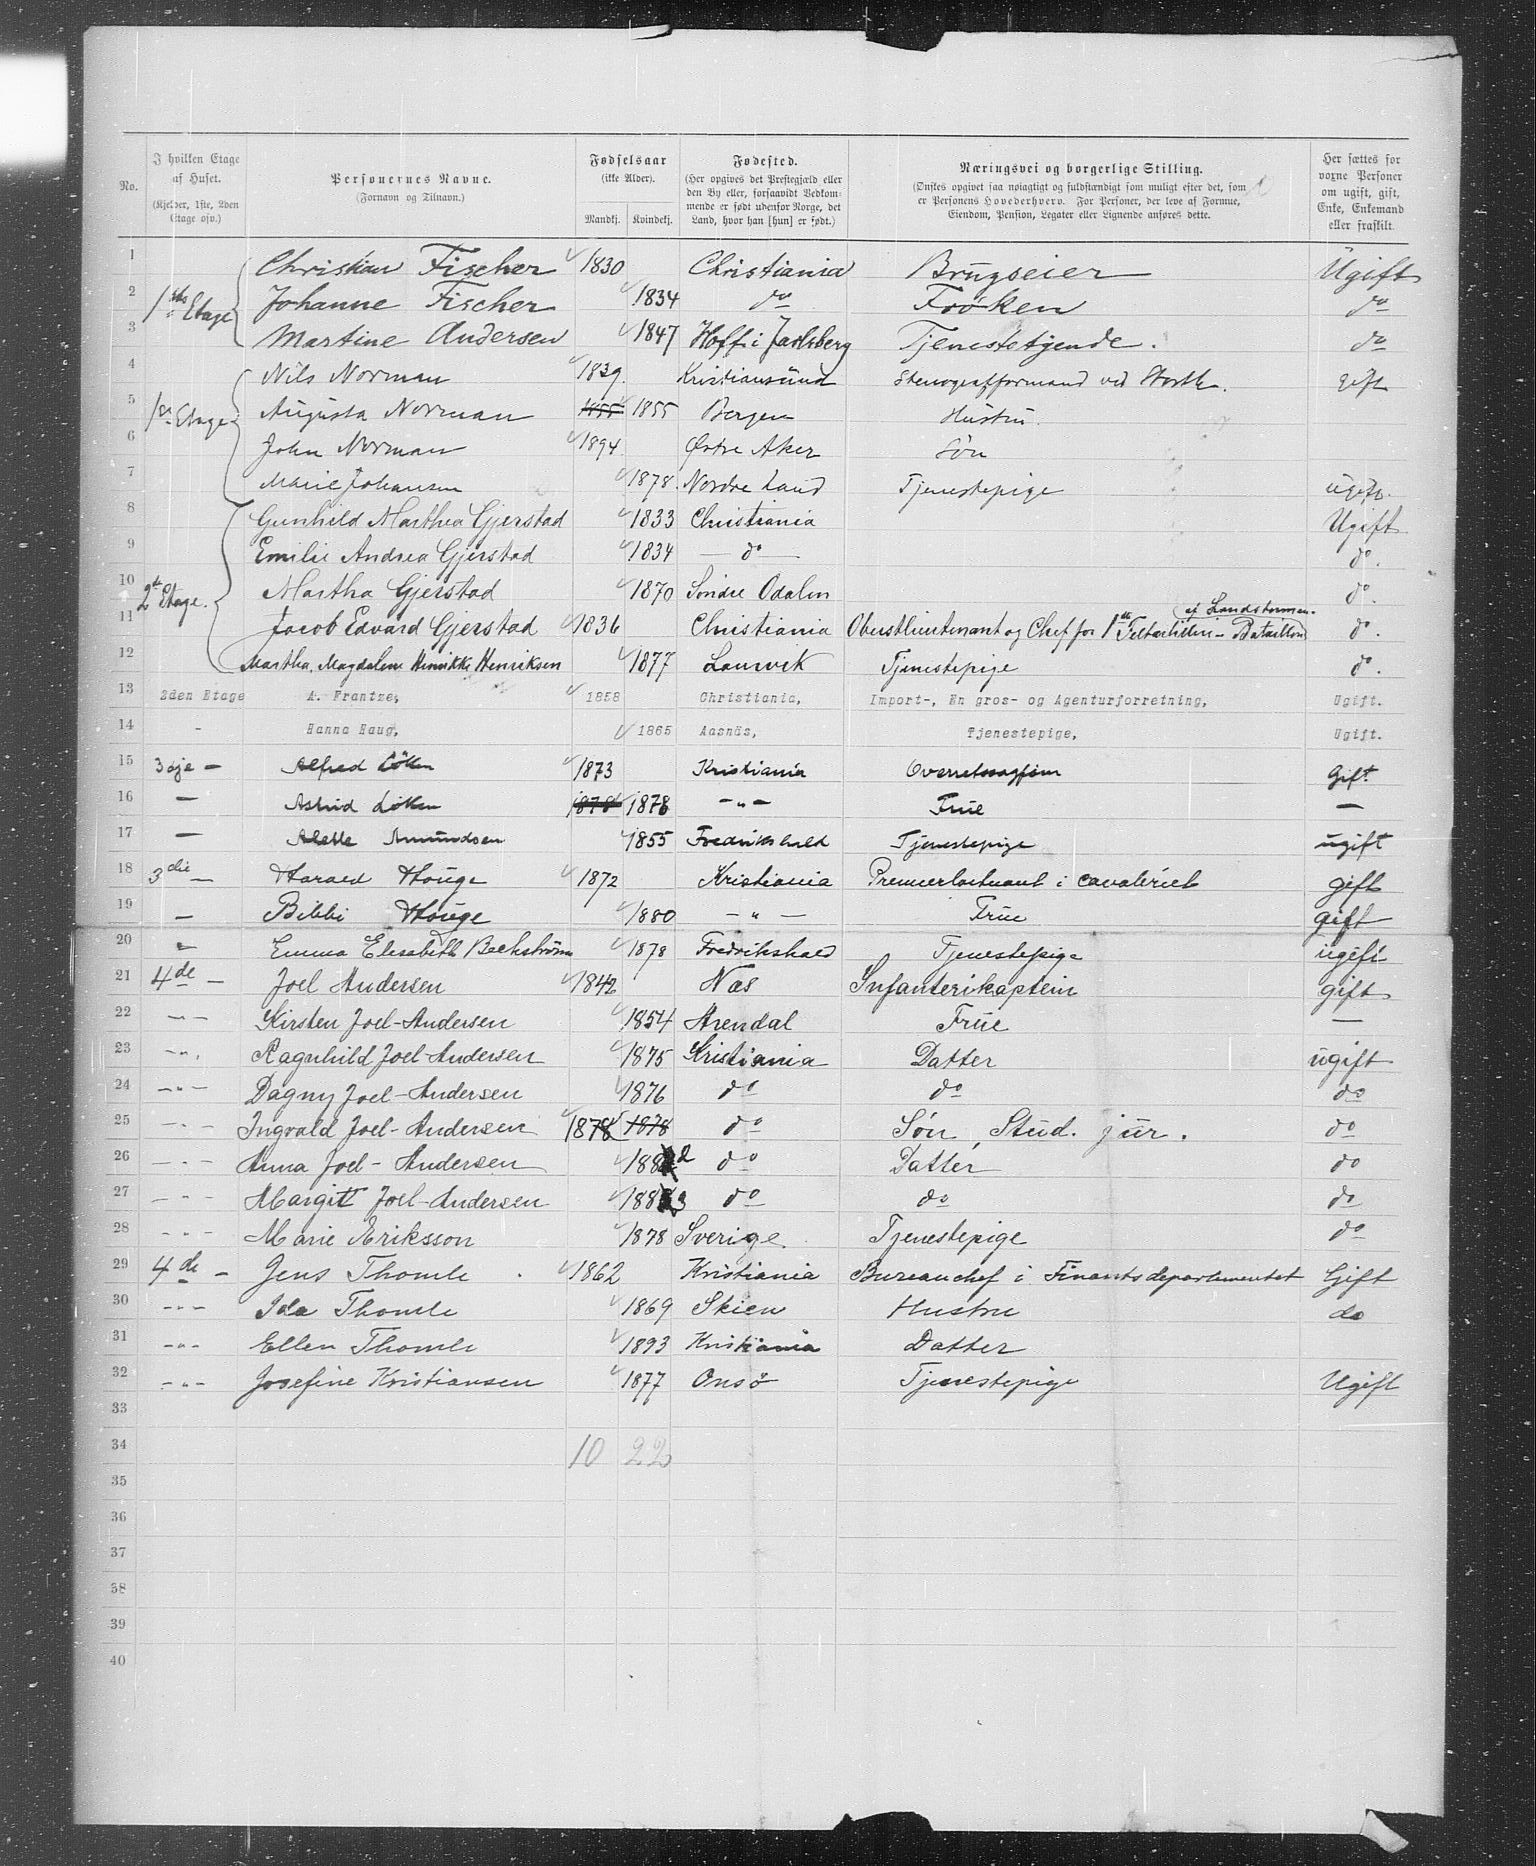 No.
I hvilken Etage af Huset.
(Kjelder, 1ste, 2den Etage osv.)
Personernes Navne.
(Fornavn og Tilnavn.)
Fødselsaar
(ikke Alder).
Mandkj. Kvindekj.
Fødested.
(Her opgives det Prestegjæld eller den By eller, forsaavidt Vedkommende er født udenfor Norge, det Land, hvor han [hun] er født.)
Næringsvei og borgerlige Stilling.
(Ønskes opgivet saa nøiagtigt og fuldstændigt som muligt efter det, som er Personens Hovederhverv. For Personer, der leve af Formue, Eiendom, Pension, Legater eller Lignende anføres dette.
Her sættes for voxne Personer om ugift, gift, Enke, Enkemand eller fraskilt.
1 Christian Fischer 1830 Christiania Brugseier Ugift
2 1ste Etage Johanne Fischer 1834 do Frøken do
3 Martine Andersen 1847 Hoff i Jarlsberg Tjenestetjende. do
4 Nils Norman 1839. Kristiansund Stenografformand ved Storth. gift
5 1ste Etage Augusta Norman 1855 1855 Bergen Hustru.
6 John Norman 1894 Østre Aker Søn
7 Marie Johansen 1878. Nordre Land Tjenestepige ugift.
8 Gunhild Marthea Gjerstad 1833 Christiania Ugift
9 Emilie Andrea Gjerstad 1834 — do — do.
10 2de Etage. Martha Gjerstad 1870 Søndre Odalen do.
11 Jacob Edvard Gjerstad 1836 Christiania Oberstlieutenant og Chef for 1ste Feltartilleri-Bataillon af Landstormen. do.
12 Martha Magdalene Henrikke Henriksen 1877 Laurvik Tjenestepige do.
13 2den Etage A. Frantze, 1858 Christiania, Import-, En gros- og Agenturforretning, Ugift.
14 - Hanna Haug, 1865 Aasnäs, Tjenestepige, Ugift.
15 3dje — Alfred Løken 1873 Kristiania Overretssagfører Gift
16 — Astrid Løken 1878 1878 — " — Frue —
17 — Alette Amundsen 1855 Fredrikshald Tjenestepige ugift
18 3die — Harald Houge 1872 Kristiania Premierløitnant i Cavaleriet gift
19 — Bibbi Houge 1880 — " — Frue gift
20 — Emma Elisabeth Beckstrøm 1878 Fredrikshald Tjenestepige ugift
21 4de — Joel Andersen 1842 Næs Infanterikaptein gift
22 - " - Kirsten Joel-Andersen 1854 Arendal Frue —
23 - " - Ragnhild Joel-Andersen 1875 Kristiania Datter ugift
24 - " - Dagny Joel-Andersen 1876 do do do
25 - " - Ingvald Joel-Andersen 1878 1878 do Søn, Stud. jur. do
26 - " - Anna Joel-Andersen 1882 do Datter do
27 - " - Margitt Joel-Andersen 1883 do do do
28 - " - Marie Eriksson 1878 Sverige. Tjenestepige do
29 4de — Jens Thomle 1862 Kristiania Bureauchef i Finantsdepartementet Gift
30 - " - Ida Thomle 1869 Skien Hustru do
31 - " - Ellen Thomle 1893 Kristiania Datter
32 - " - Josefine Kristiansen 1877 Onsö Tjenestepige Ugift
33
34 10 22
35
36
37
38
39
40